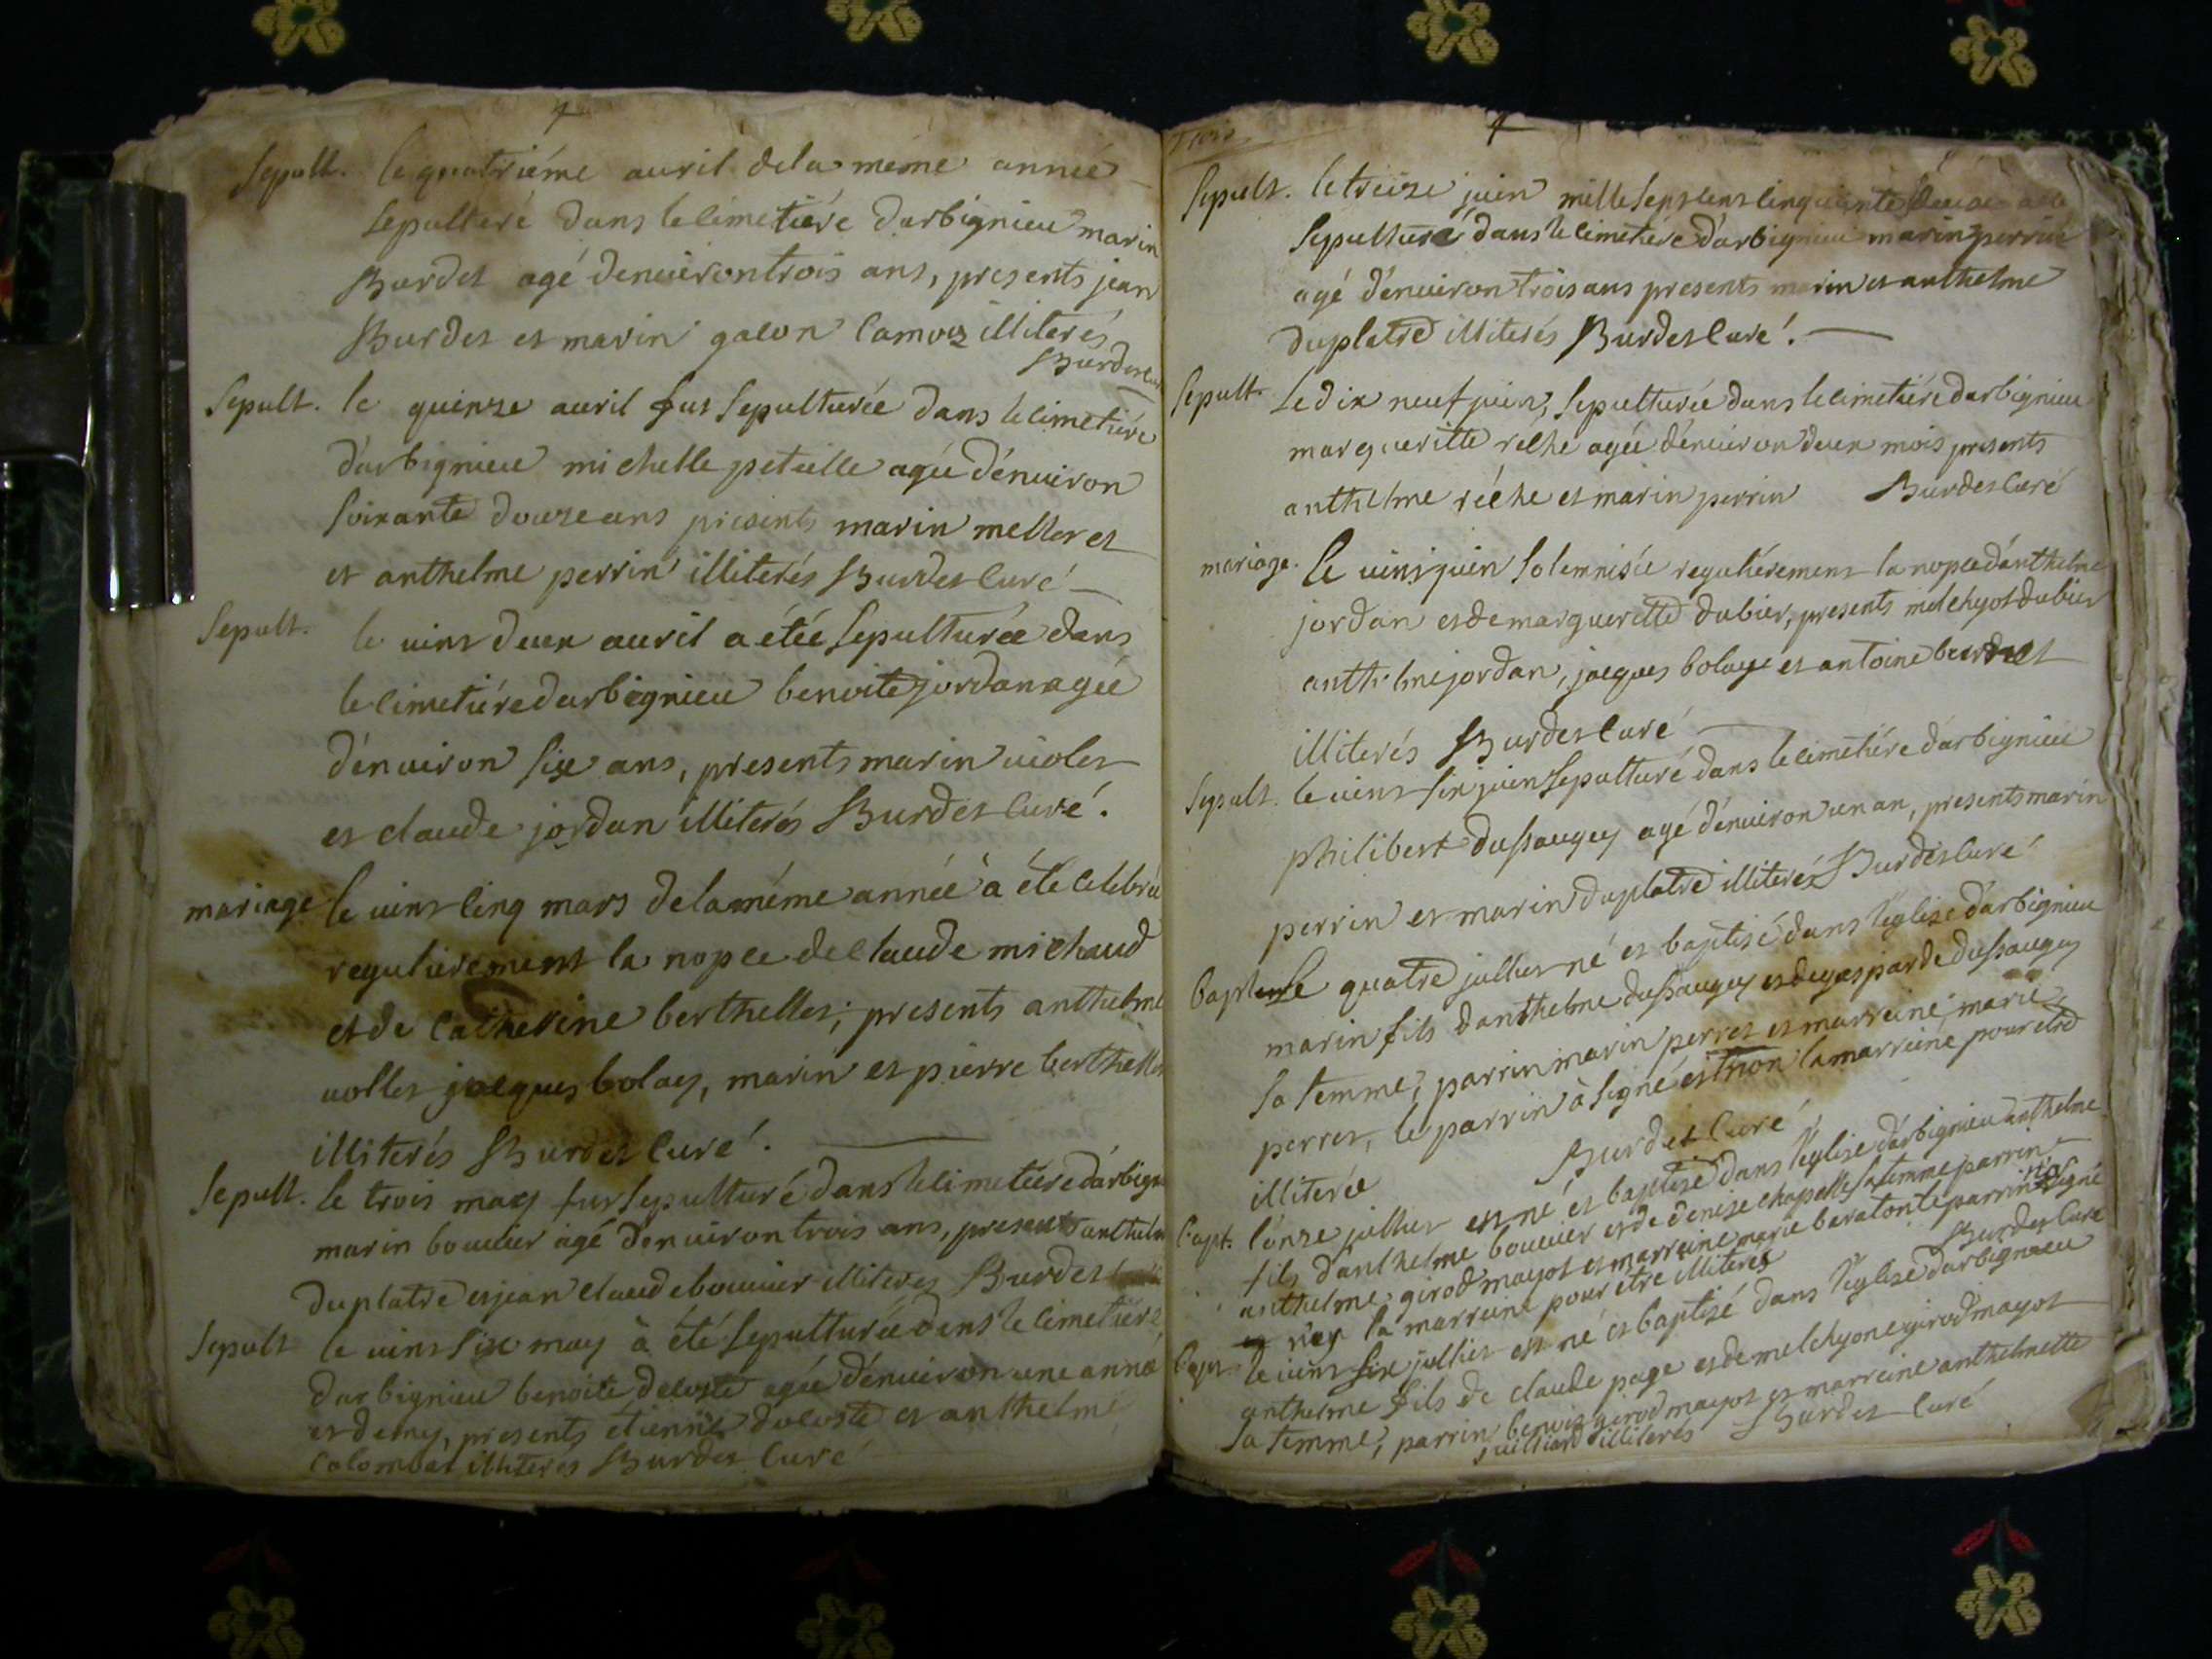 Sepult. le quatriéme auril dela méme anneé
sepulturé dans le cimetiére darbignieu marin
Burdet agé denuiron trois ans, presents jean
Burdet et marin galon illiterés
Burdet curé
Sepult. le quinze auril fut sepulturée dans le cimetiére
d'arbignieu michelle petielle agée d'énuiron
soixante douze ans presents marin melleret
et anthelme perrin illiterés Burdet curé
Sepult. le uint deux auril a étée sepulturée dans
le cimetiére darbignieu benoite jordan agée
d'énuiron six ans, presents marin uiolet
et claude jordan illiterés Burdet curé.
mariage le uint cinq mars dela méme année à été celebrée
regulierement la nopce de claude michaud
et de catherine berthelles; presents anthelme
uollet jacques bolay, marin et pierre berthelles
illiterés Burdet curé.
Sepult. le trois may fut sepulturé dans le cimetiére d'arbign
marin bouuier agé denuiron trois ans, presents anthelm
duplatre et jean claude bouuier illiteres Burdet
Sepult le uint six may à été sepulturée dans le cimetiere
darbignieu benoite agée d'énuiron une année
et demy, presents etienne et anthelme
colombat illiteres Burdet cure
Trois
Sepult. le treize juin mille sept cent cinquante deux
sepulturé dans le cimetiére d'arbignieu marin perrin
agé d'énuiron trois ans presents marin et anthelme
duplatre illiterés Burdet curé.
Sepult. Le dix neuf juin, sepulturée dans le cimetiére darbignieu
margueritte réche agée dénuiron deux mois presents
anthelme réche et marin perrin Burdet curé
mariage. Le uint juin solemnisée reguliérement la nopce d'anthelme
jordan et de marguerette dubier, presents melchyot dubier
anthelme jordan, jacques bolay et antoine burdet
illiterés Burdet curé
Sepult. le uint six juin sepulturé dans le cimetiére darbignieu
philibert dussaugey agé d'énuiron un an, presents marin
perrin et marin duplatre illiterés Burdet curé
Baptême Le quatre juillet né et baptisé dans l'eglise d'arbignieu
marin fils d'anthelme dussaugey et de gasparde dussaugey
sa femme, parrin marin perret et marreine marie
perret, le parrin à signé et non la marreine pour etre
illiterée Burdet curé
bapt. l'onze juillet est né et baptisé dans l'eglise d'arbignieu anthelme
fils d'anthelme bouuier et de denise chapelle sa femme parrin
anthelme girod mayot et marreine marie baraton le parrin n'a signé
ny la marreine pour être illiterés Burdet curé
bapt. le uint six juillet est né et baptisé dans l'eglise darbignieu
anthelme fils de claude page et de melchyone girod mayot
sa femme, parrin benoit girod mayot et marreine anthelmette
juilliard illiterés Burdet curé